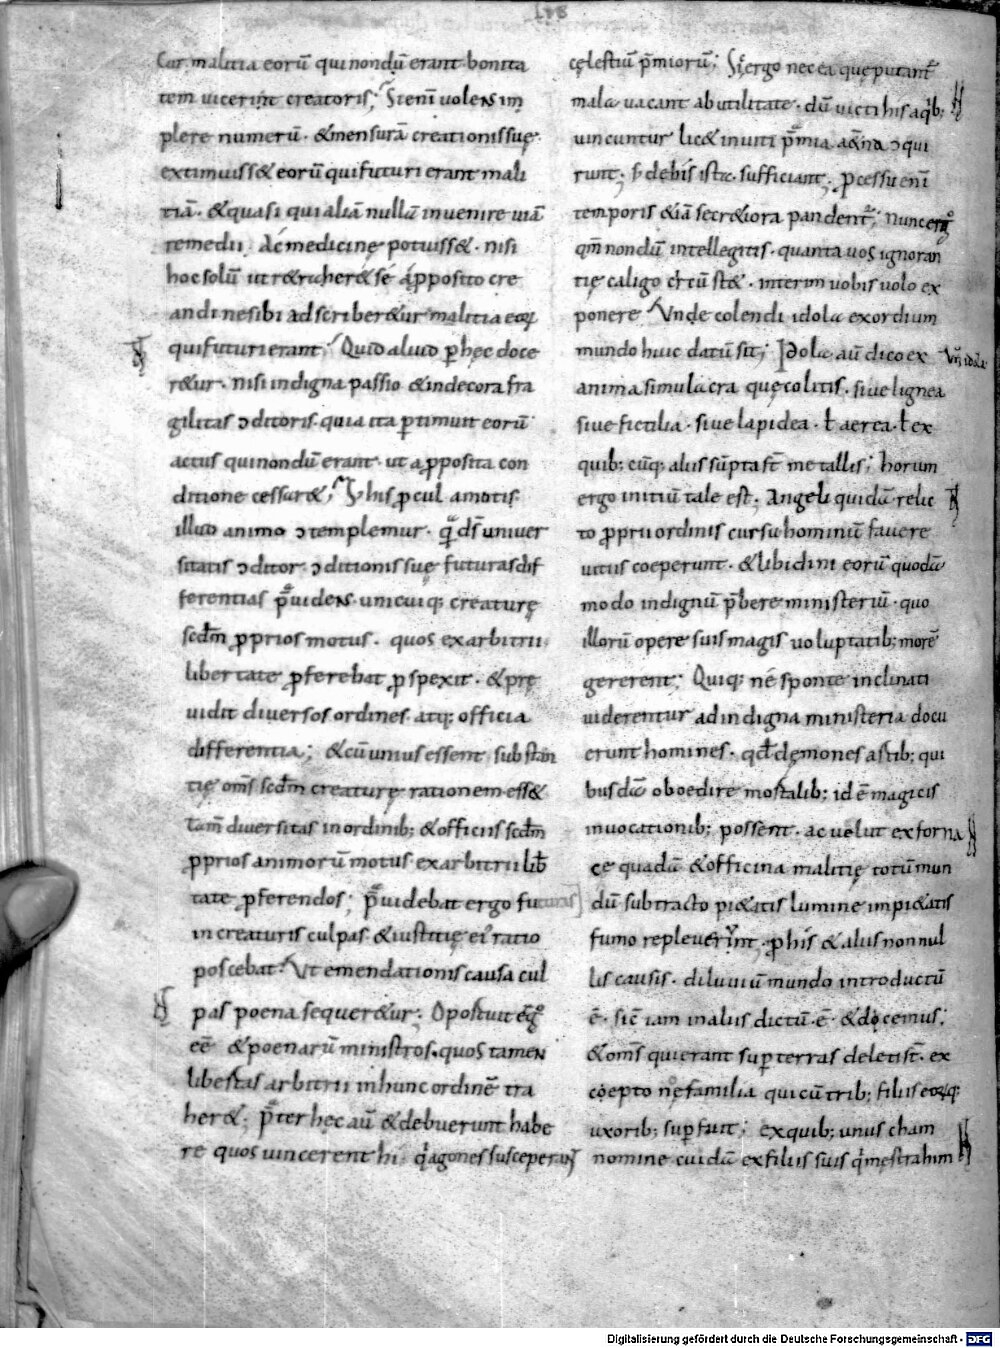 Cur malitia eorū qui nondū erant bonita
tem uicerint creatoris; Si enī uolens im
plere numerū · & mensurā creationis suę·
extimuiss& eorū qui futuri erant mali
tiā· & quasi qui aliā nullā inuenire uiā
remedii Ac medicinę potuiss&· nisi
hoc solū ut r&raher& se a pposito cre
andi ne sibi adscriber&ur malitia eorū
qui futuri erant; Quid aliud p hęc doce
r&ur· nisi indigna passio & indecora fra
gilitas ɔditoris· quia ita ptimuit eorū
actus qui nondū erant· ut a pposita con
ditione cessar&; his pcul amotis
illud animo ɔtemplemur· qđ ds uniuer
sitatis ɔditor· ɔditionis suę futuras dif
ferentias p̄uidens· unicuiq; creaturę
scdm pprios motus· quos ex arbitrii
libertate pferebat pspexit· & prę
uidit diuersos ordines· atq; officia
differentia; & cū unius essent substan
tię oms scdm creaturę rationem ess&
Tam diuersitas in ordinib; & officiis scdm
pprios animorū motus ex arbitrii lib
tate pferendos; p̄uidebat ergo futuras
in creaturis culpas & iustitię ei ratio
poscebat Ut emendationis causa cul
pas poena sequer&ur; Oportuit ergo
eē & poenarū ministros· quos tamen
libertas arbitrii in hunc ordinē tra
her&; p̄ter hęc aū & debuerunt habe
re quos uincerent hi· qi agones susceperant
cęlestiū p̄miorū; Sic ergo nec ea quę putant
mala uacant ab utilitate· dū uicti his a qib;
uincuntur lic& inuiti p̄mia aetna ɔqui
runt; sufficiant; pcessu enī
temporis &iā secr&iora pandent; Nunc ergo
qm nondū intellegitis· quanta uos ignoran
tię caligo circū st&· interim uobis uolo ex
ponere Unde colendi idola exordium
mundo huic datū sit; Idola aū dico ex
anima simulacra quę colitis· siue lignea
siue fictilia· siue lapidea· ł aerea· ł ex
quib; cūq; aliis sūpta st metallis; horum
ergo initiū tale est; Angeli quidā relic
to pprii ordinis cursu hominū fauere
uitiis coeperunt· & libidini eorū quodā
modo indignū p̄bere ministeriū· quo
illorū opere suis magis uoluptatib; morē
gererent; Quiq; ne sponte inclinati
uiderentur ad indigna ministeria docu
erunt homines· qđ dęmones astib; qui
busdā oboedire mostalib; id ē magicis
inuocationib; possent· ac uelut ex forna
ce quadā & officina malitię totū mun
dū subtracto pi&atis lumine impi&atis
fumo repleuerint; p his & aliis non nul
lis causis· diluuiū mundo introductū
ē· sic iam in aliis dictū· ē· & docemus;
& oms qui erant sup terras deleti st· ex
coepto noe familia qui cū trib; filiis eorūq;
uxorib; supfuit; ex quib; unus cham
nomine cuidā ex filiis suis qi mestrahim
Digitalisierung gefördert durch die Deutsche Forschungsgemeinschaft - DFG